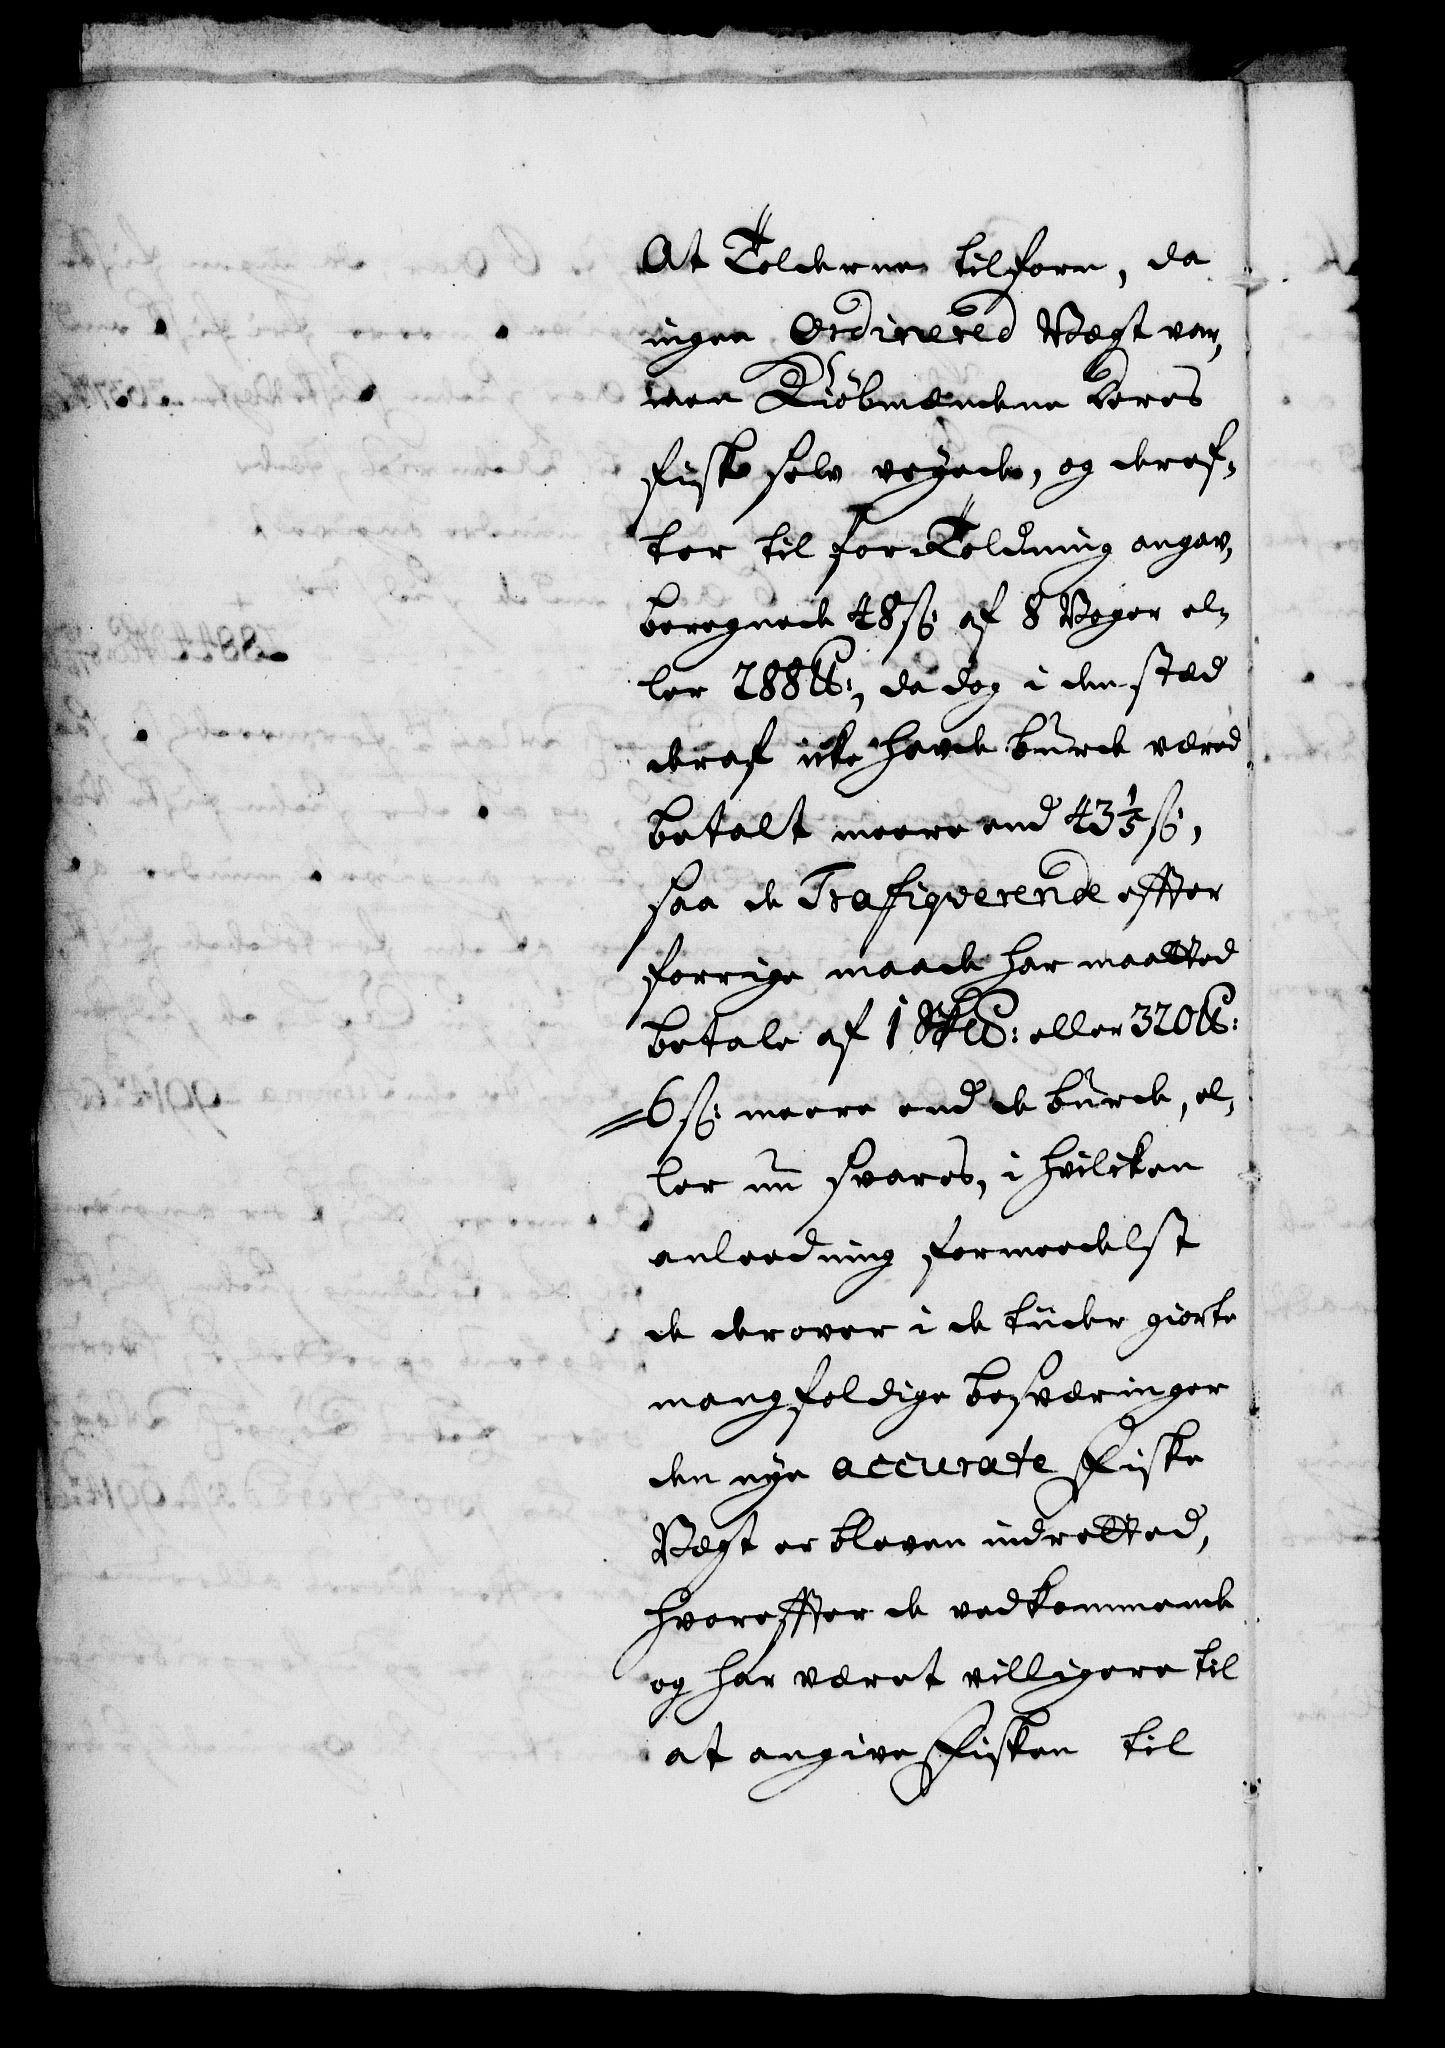 At Tolderne tilforn, da
ingen Ordinered Vegt var,
men Kiøbmændene deres
fisk selv veyede, og deref-
ter til for Toldning angav,
beregnede 48 ß af 8 Voger el-
ler 288 ℔:, da dog i den stæd
deraf icke hafde burde væred
betalt meere end 43 1/5 ß,
saa de Trafiqverende effter
forrige maade har maatted
betale af 1 Sk℔: eller 320 ℔:
6 ß meere end de burde, el-
ler nu svares, i hvilcken
anleedning formeedelst
de derover i de tiider giorte
mangfoldige besværinger
den nye accurate Fiske
Vegt er bleven indretted,
hvoreffter de vedkommende
og har været villigere til
at angive Fisken til